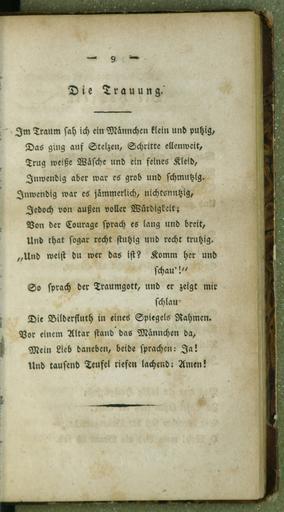 — 9 —
Die Trauung.
Im Traum sah ich ein Männchen klein und putzig,
Das ging auf Stelzen, Schritte ellenweit,
Trug weiße Wäsche und ein feines Kleid,
Inwendig aber war es grob und schmutzig.
Inwendig war es jämmerlich, nichtsnutzig,
Jedoch von außen voller Würdigkeit;
Von der Courage sprach es lang und breit,
Und that sogar recht stutzig und recht trutzig.
„Und weist du wer das ist? Komm her und
schau'!“
So sprach der Traumgott, und er zeigt mir
schlau
Die Bilderfluth in eines Spiegels Rahmen.
Vor einem Altar stand das Männchen da,
Mein Lieb daneben, beide sprachen: Ja!
Und tausend Teufel riefen lachend: Amen!